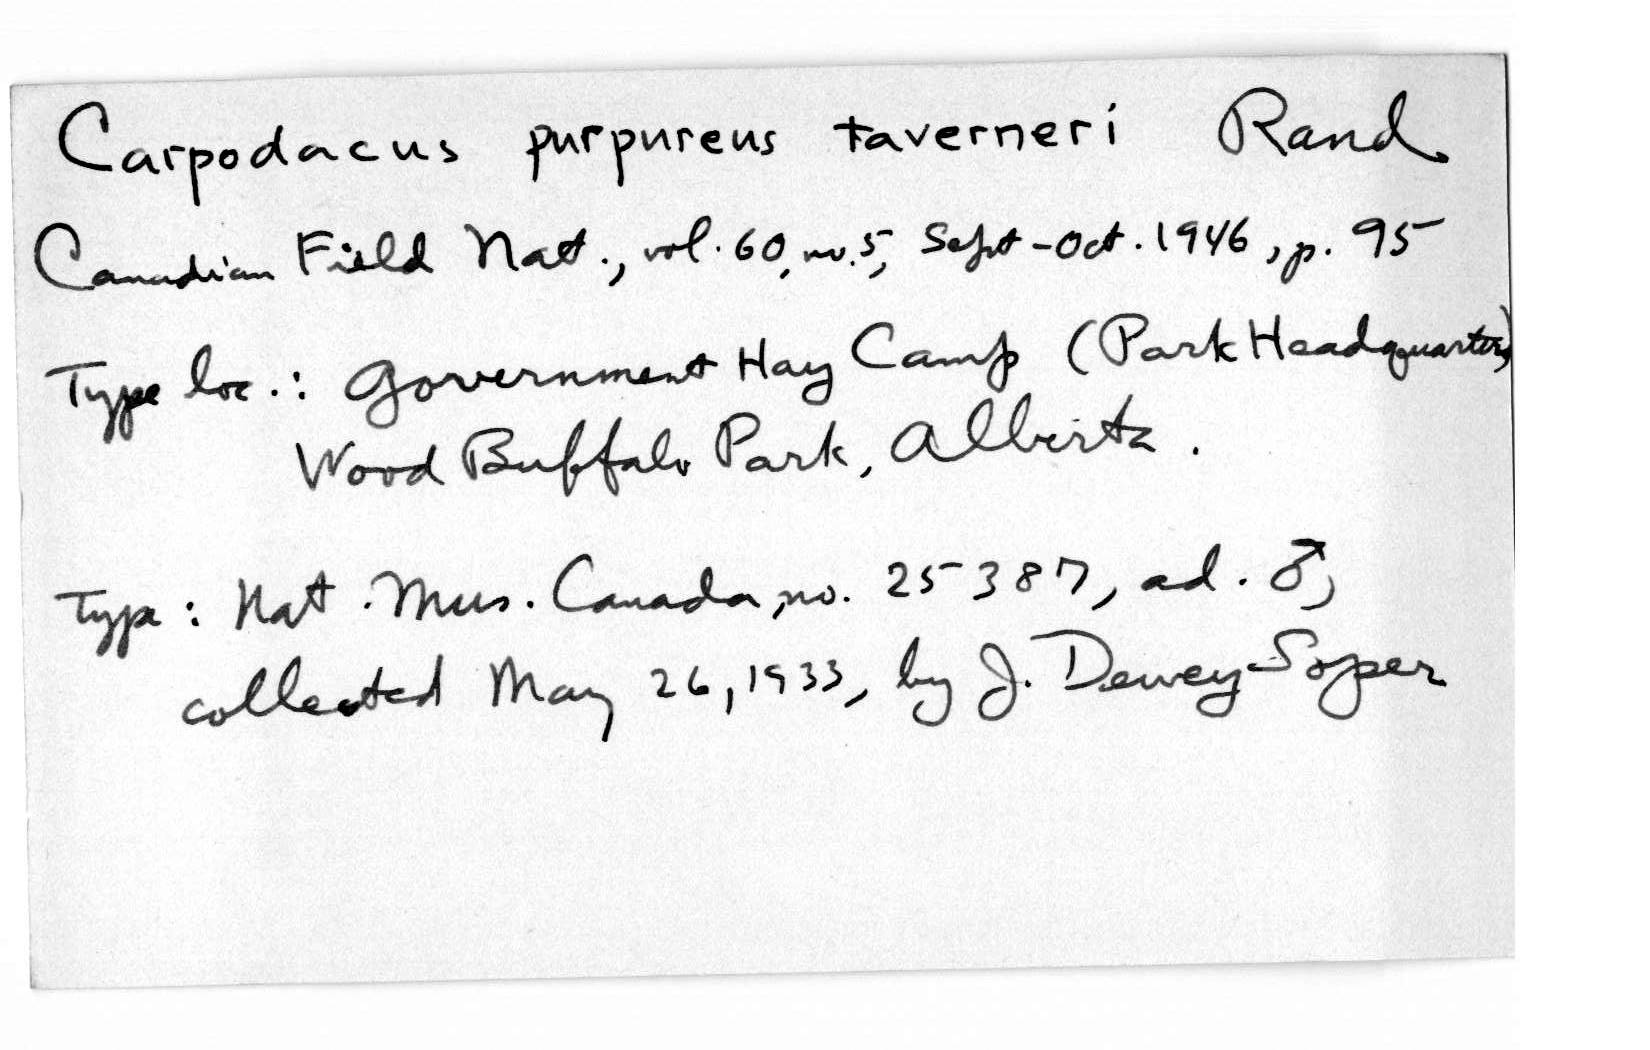 Carpodacus purpureus taverneri Rand
Canadian Field Nat., vol. 60, no. 5, Sept-Oct. 1946, p. 95
Type loc.: Government Hay Camp (Park Headquarters)
Wood Buffalo Park, Alberta.
Type: Nat. Mus. Canada, no. 25387, ad. ♂,
collected May 26, 1933, by J. Dewey Soper